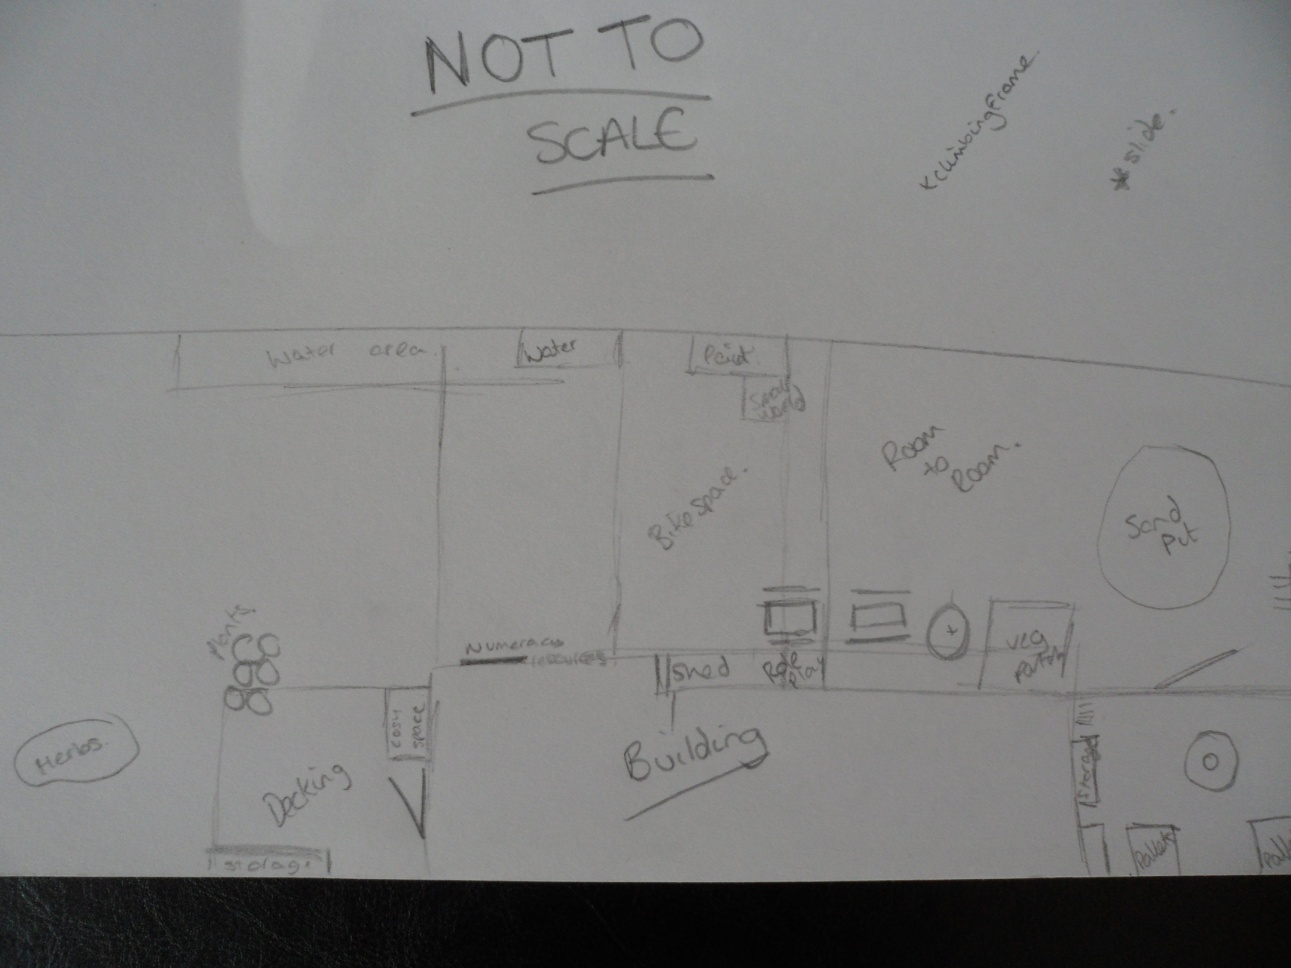 NOT TO
SCALE
climbing frame
slide.
Water area.
Water
Paint.
Small
World
Room
to
Room.
Bike Space.
Sand
Pit
Plants
Numeracy
resources
Shed
Role
Play
veg
patch
Herbs.
cosy
space
Building
Decking
storage
storage
Pallets